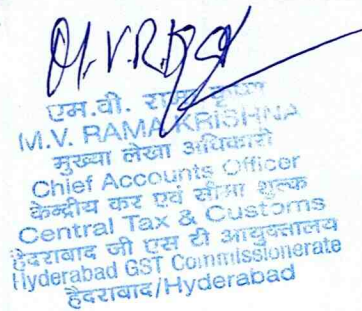 एम.वी. रामा कृष्णा
M.V. RAMA KRISHNA
मुख्या लेखा अधिकारी
Chief Accounts Officer
केन्द्रीय कर एवं सीमा शुल्क
Central Tax & Customs
हैदराबाद जी एस टी आयुक्तालय
Hyderabad GST Commissionerate
हैदराबाद/Hyderabad